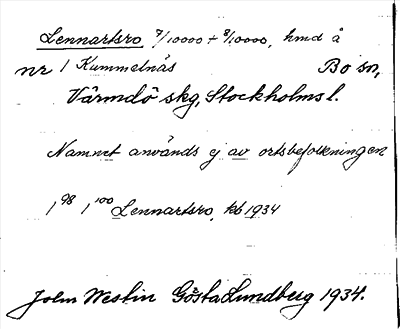 Lennartsro 7/10000 + 8/10000, hmd å
nr 1 Kummelnäs Bo sn,
Värmdö skg, Stockholms l.
Namnet används ej av ortsbefolkningen
1 98 1 100 Lennartsro, kb 1934
John Westin Gösta Lundberg 1934.